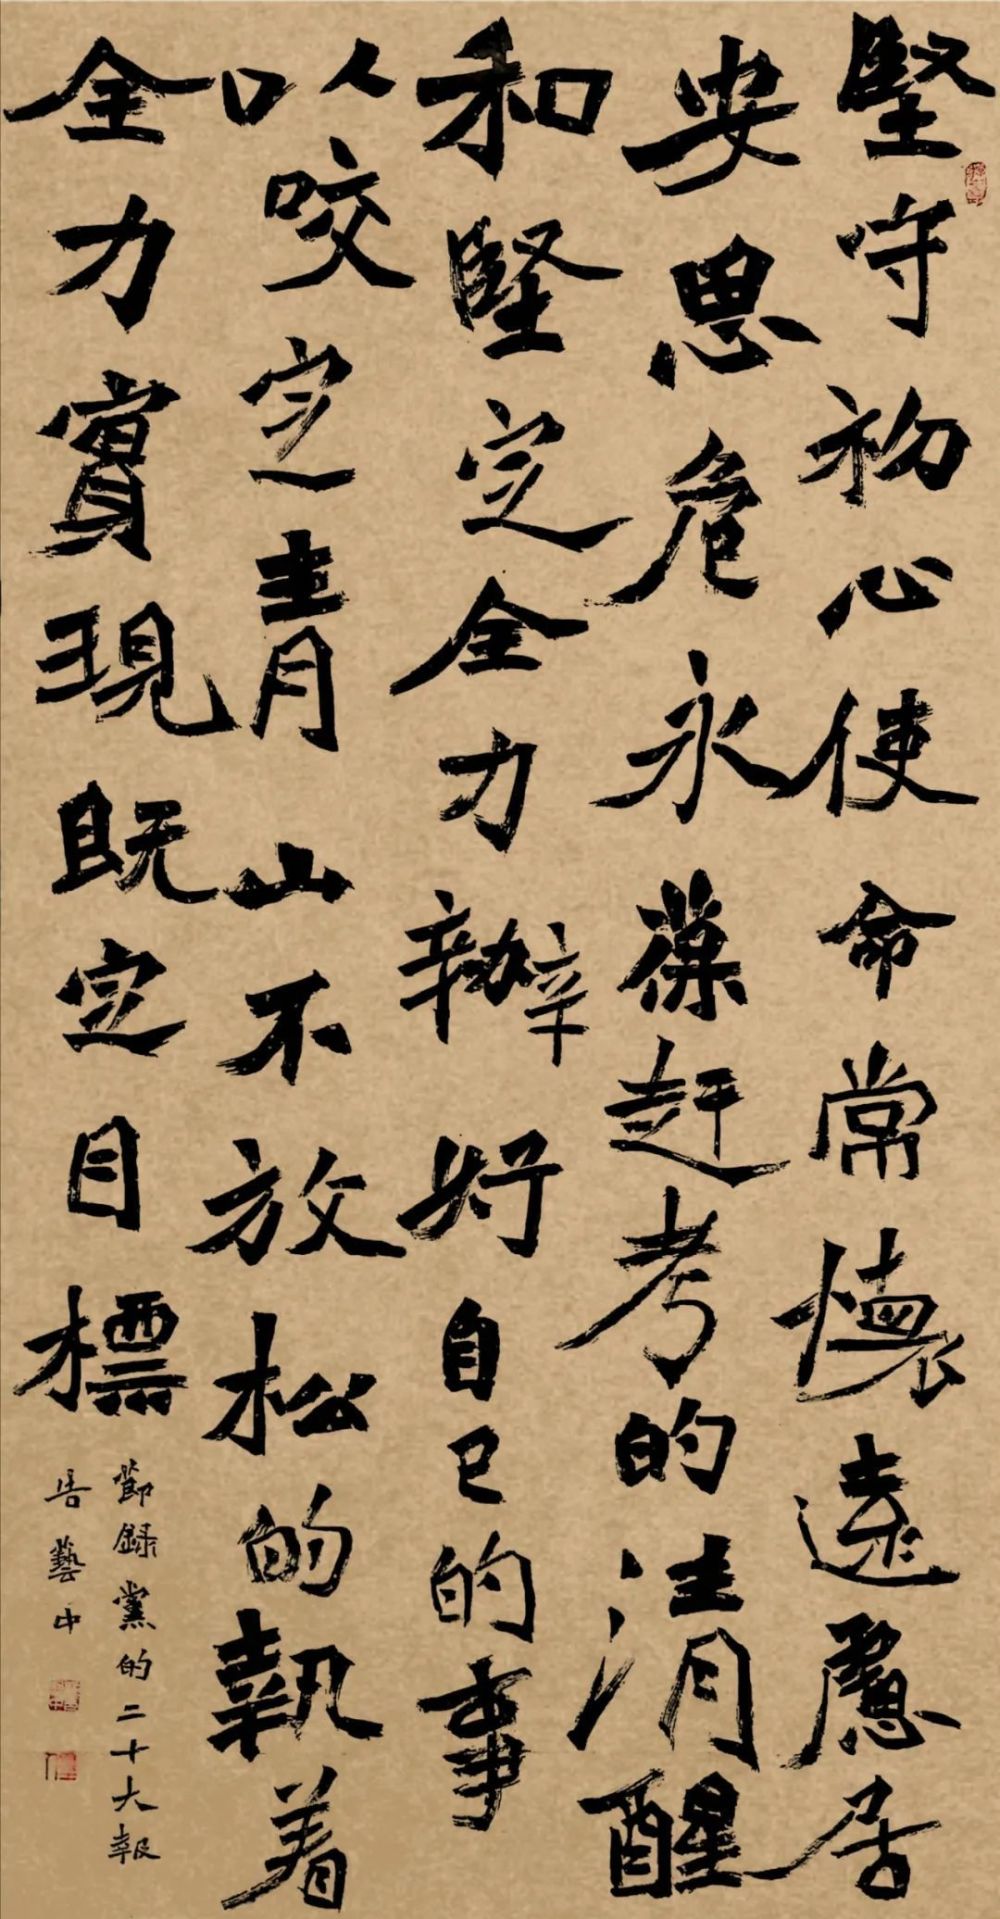 堅守初心使命常懷遠慮居
安思危永葆赶考的清醒
和堅定全力辦好自己的事
以咬定青山不放松的執着
全力實現既定目標
節録黨的二十大報
告藝中